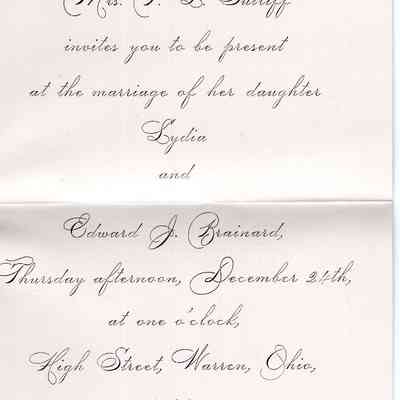 Mrs.
invites you to be present
at the marriage of her daughter
Lydia
and
Edward J. Brainard,
Thursday afternoon, December 24th,
at one o'clock,
High Street, Warren, Ohio,